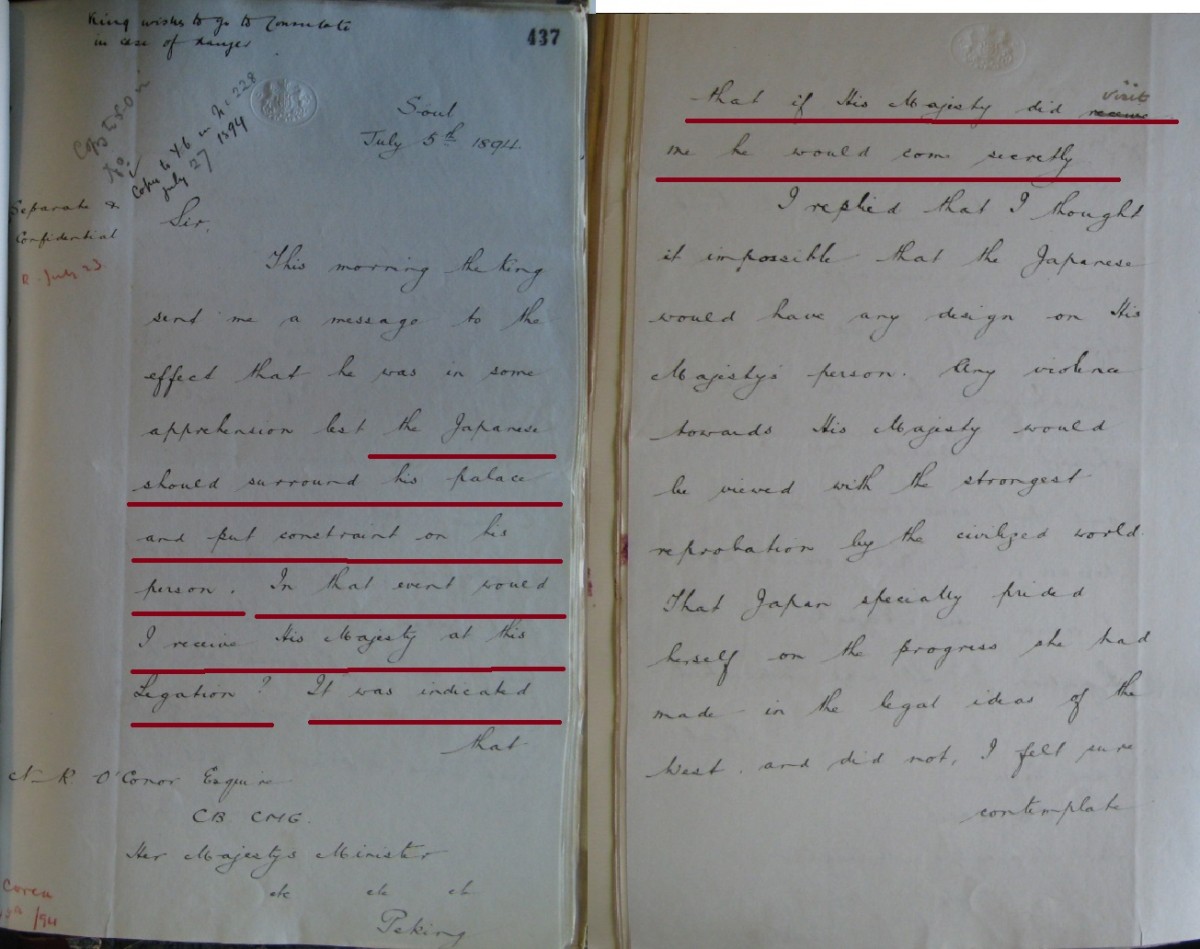 King wishes to go to Consulate
in case of danger
437
Copy to F.O. in
No
Copies to Y.6 in No 228
July 27 1894
Soul
July 5th 1894.
Separate &
Confidential
R. July 23
Sir,
This morning the King
send me a message to the
effect that he was in some
apprehension lest the Japanese
should surround his palace
and put constraint on his
person. In that event would
I receive His Majesty at this
Legation? It was indicated
that
N. R. O'Conor Esquire
CB CMG.
Her Majestys Minister
etc etc etc
Peking
Corea
/94
that if His Majesty did receive visit
me he would come secretly
I replied that I thought
it impossible that the Japanese
would have any design on His
Majesty's person. Any violence
towards His Majesty would
be viewed with the strongest
reprobation by the civilized world.
That Japan specially prided
herself on the progress she had
made in the legal ideas of the
West. and did not, I felt sure
contemplate